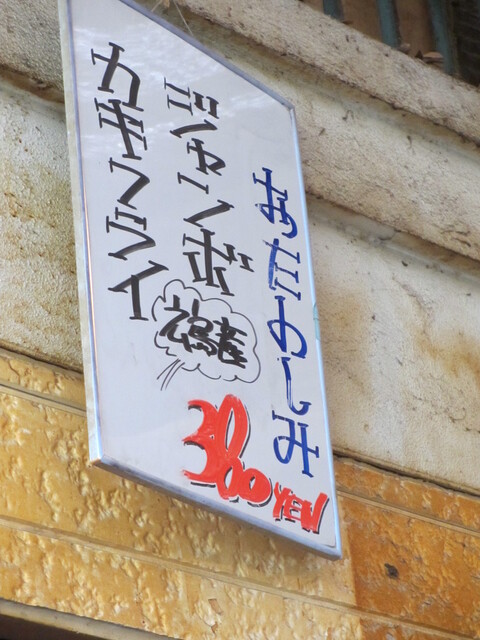 おたのしみ
ジャンボ
カキフライ
広島産
380YEN